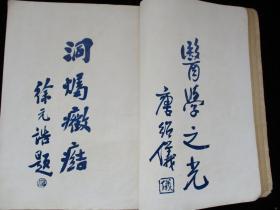 醫學之光
唐紹儀
洞燭癥結
徐元誥題